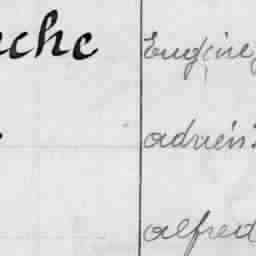 eche Eugène
adrien
alfred